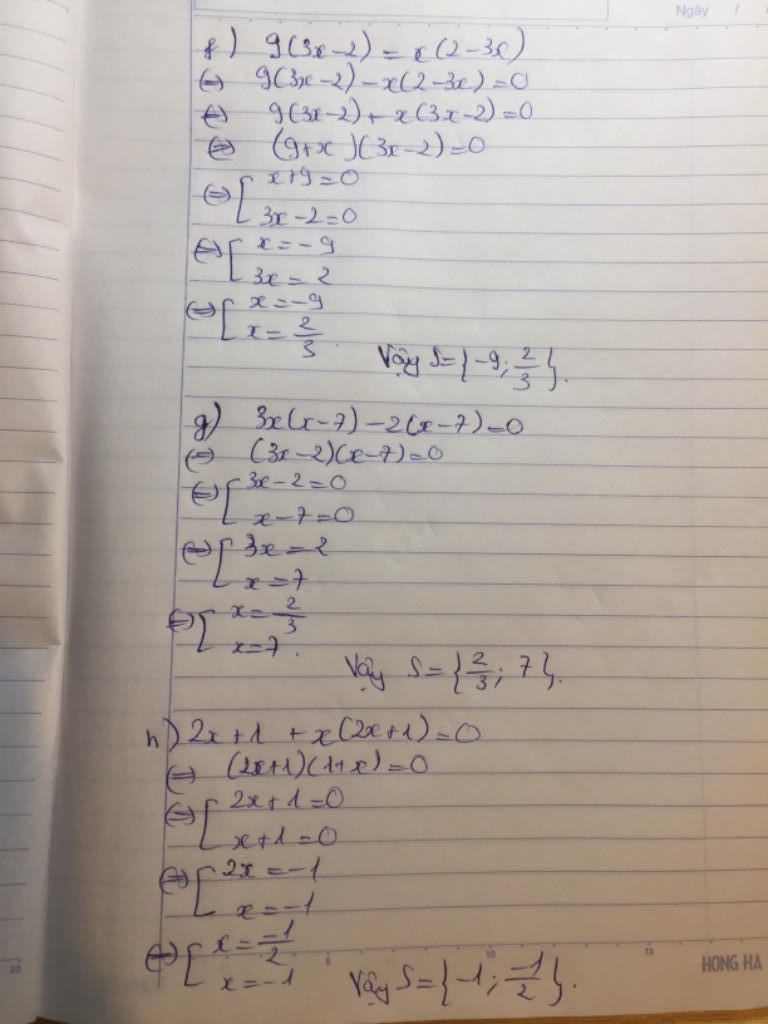 Ngày / /
f) 9(3x-2) = x(2-3x)
(=) 9(3x-2)-x(2-3x)=0
(=) 9(3x-2)+x(3x-2)=0
(=) (9+x)(3x-2)=0
(=) [ x+9=0
3x-2=0
(=) [ x=-9
3x=2
(=) [ x=-9
x=2/3.
Vậy S={-9; 2/3}.
g) 3x(x-7)-2(x-7)=0
(=) (3x-2)(x-7)=0
(=) [ 3x-2=0
x-7=0
(=) [ 3x=2
x=7
(=) [ x=2/3
x=7.
Vậy S={2/3; 7}.
h) 2x+1 +x(2x+1)=0
(=) (2x+1)(1+x)=0
(=) [ 2x+1=0
x+1=0
(=) [ 2x=-1
x=-1
(=) [ x=-1/2
x=-1
Vậy S={-1; -1/2}.
5 10 15
HONG HA